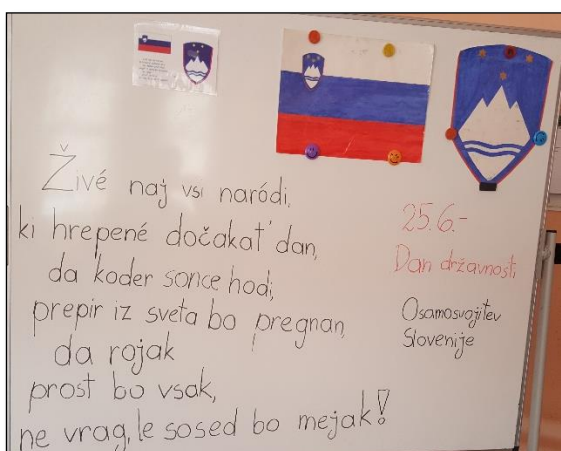 Živé naj vsi naródi,
ki hrepené dočakat' dan,
da koder sonce hodi,
prepir iz sveta bo pregnan,
da rojak
prost bo vsak,
ne vrag, le sosed bo mejak!
25.6.-
Dan državnosti
Osamosvojitev
Slovenije